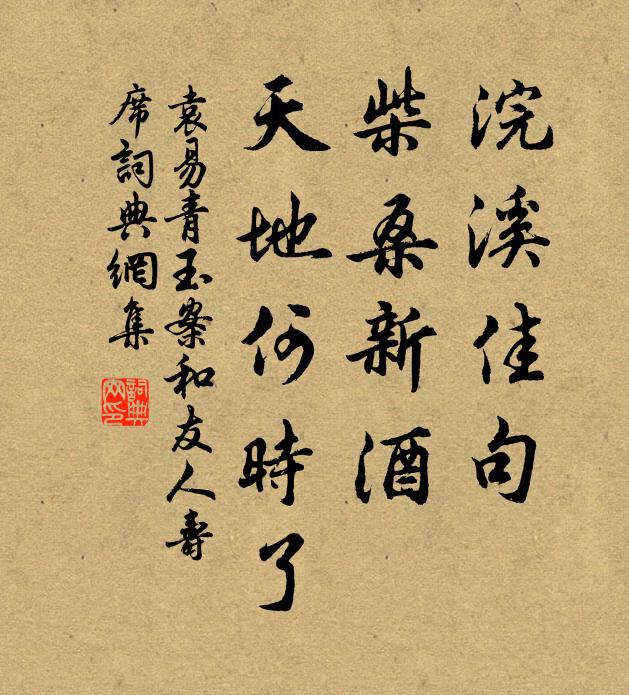 浣溪佳句
柴桑新酒
天地何時了
袁易青玉案和友人壽
席詞典網集
詞典
网印